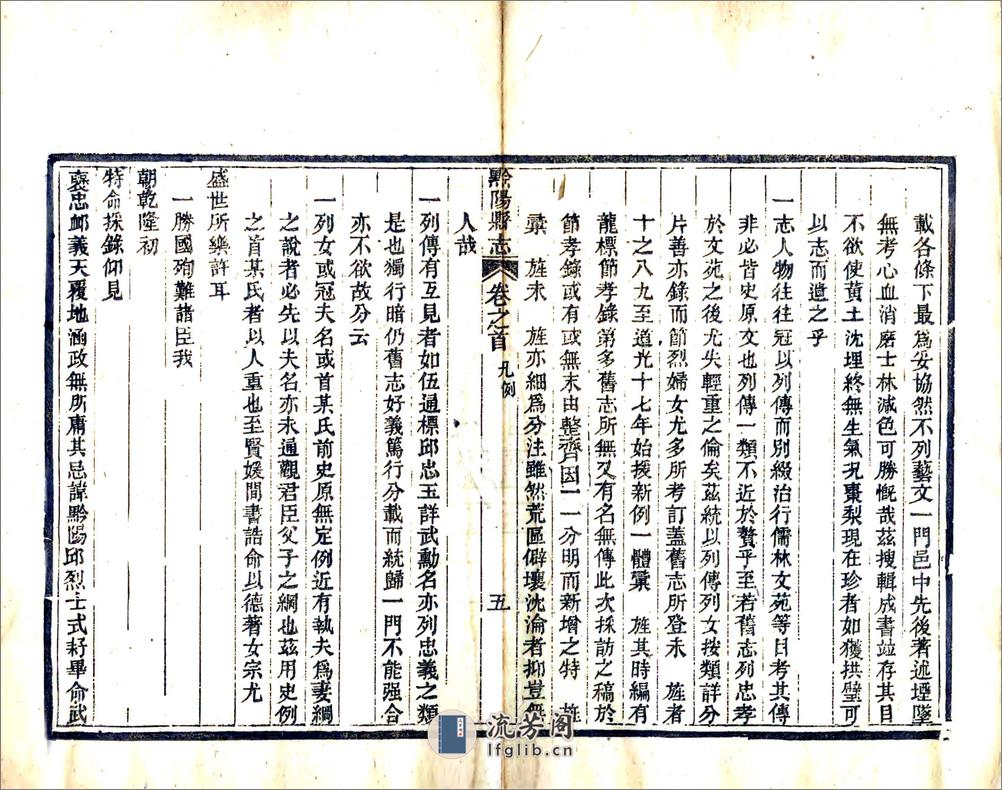 載各條下最爲妥協然不列藝文一門邑中先後著述堙墜
無考心血消磨士林減色可勝慨哉茲搜輯成書竝存其目
不欲使黃土沈埋終無生氣況棗梨現在珍者如獲拱璧可
以志而遺之乎
一志人物往往冠以列傳而別綴治行儒林文苑等目考其傳
非必皆史原文也列傳一類不近於贅乎至若舊志列忠孝
於文苑之後尤失輕重之倫矣茲統以列傳列女按類詳分
片善亦錄而節烈婦女尤多所考訂蓋舊志所登未 旌者
十之八九至道光十七年始援新例一體彙 旌其時編有
龍標節孝錄第多舊志所無又有名無傳此次採訪之稿於
節孝錄或有或無末由整齊因一一分明而新增之特 旌
彙 旌未 旌亦細爲分注雖然荒區僻壤沈淪者抑豈無
黔陽縣志 卷之首 凡例 五
人哉
一列傳有互見者如伍通標邱忠玉詳武勳名亦列忠義之類
是也獨行暗仍舊志好義篤行分載而統歸一門不能强合
亦不欲故分云
一列女或冠夫名或首某氏前史原無定例近有執夫爲妻綱
之說者必先以夫名亦未通觀君臣父子之綱也茲用史例
之首某氏者以人重也至賢媛間書誥命以德著女宗尤
盛世所樂許耳
一勝國殉難諸臣我
朝乾隆初
特命採錄仰見
褒忠卹義天覆地涵政無所庸其忌諱黔陽邱烈士式耔畢命武
流芳图
lfglib.cn